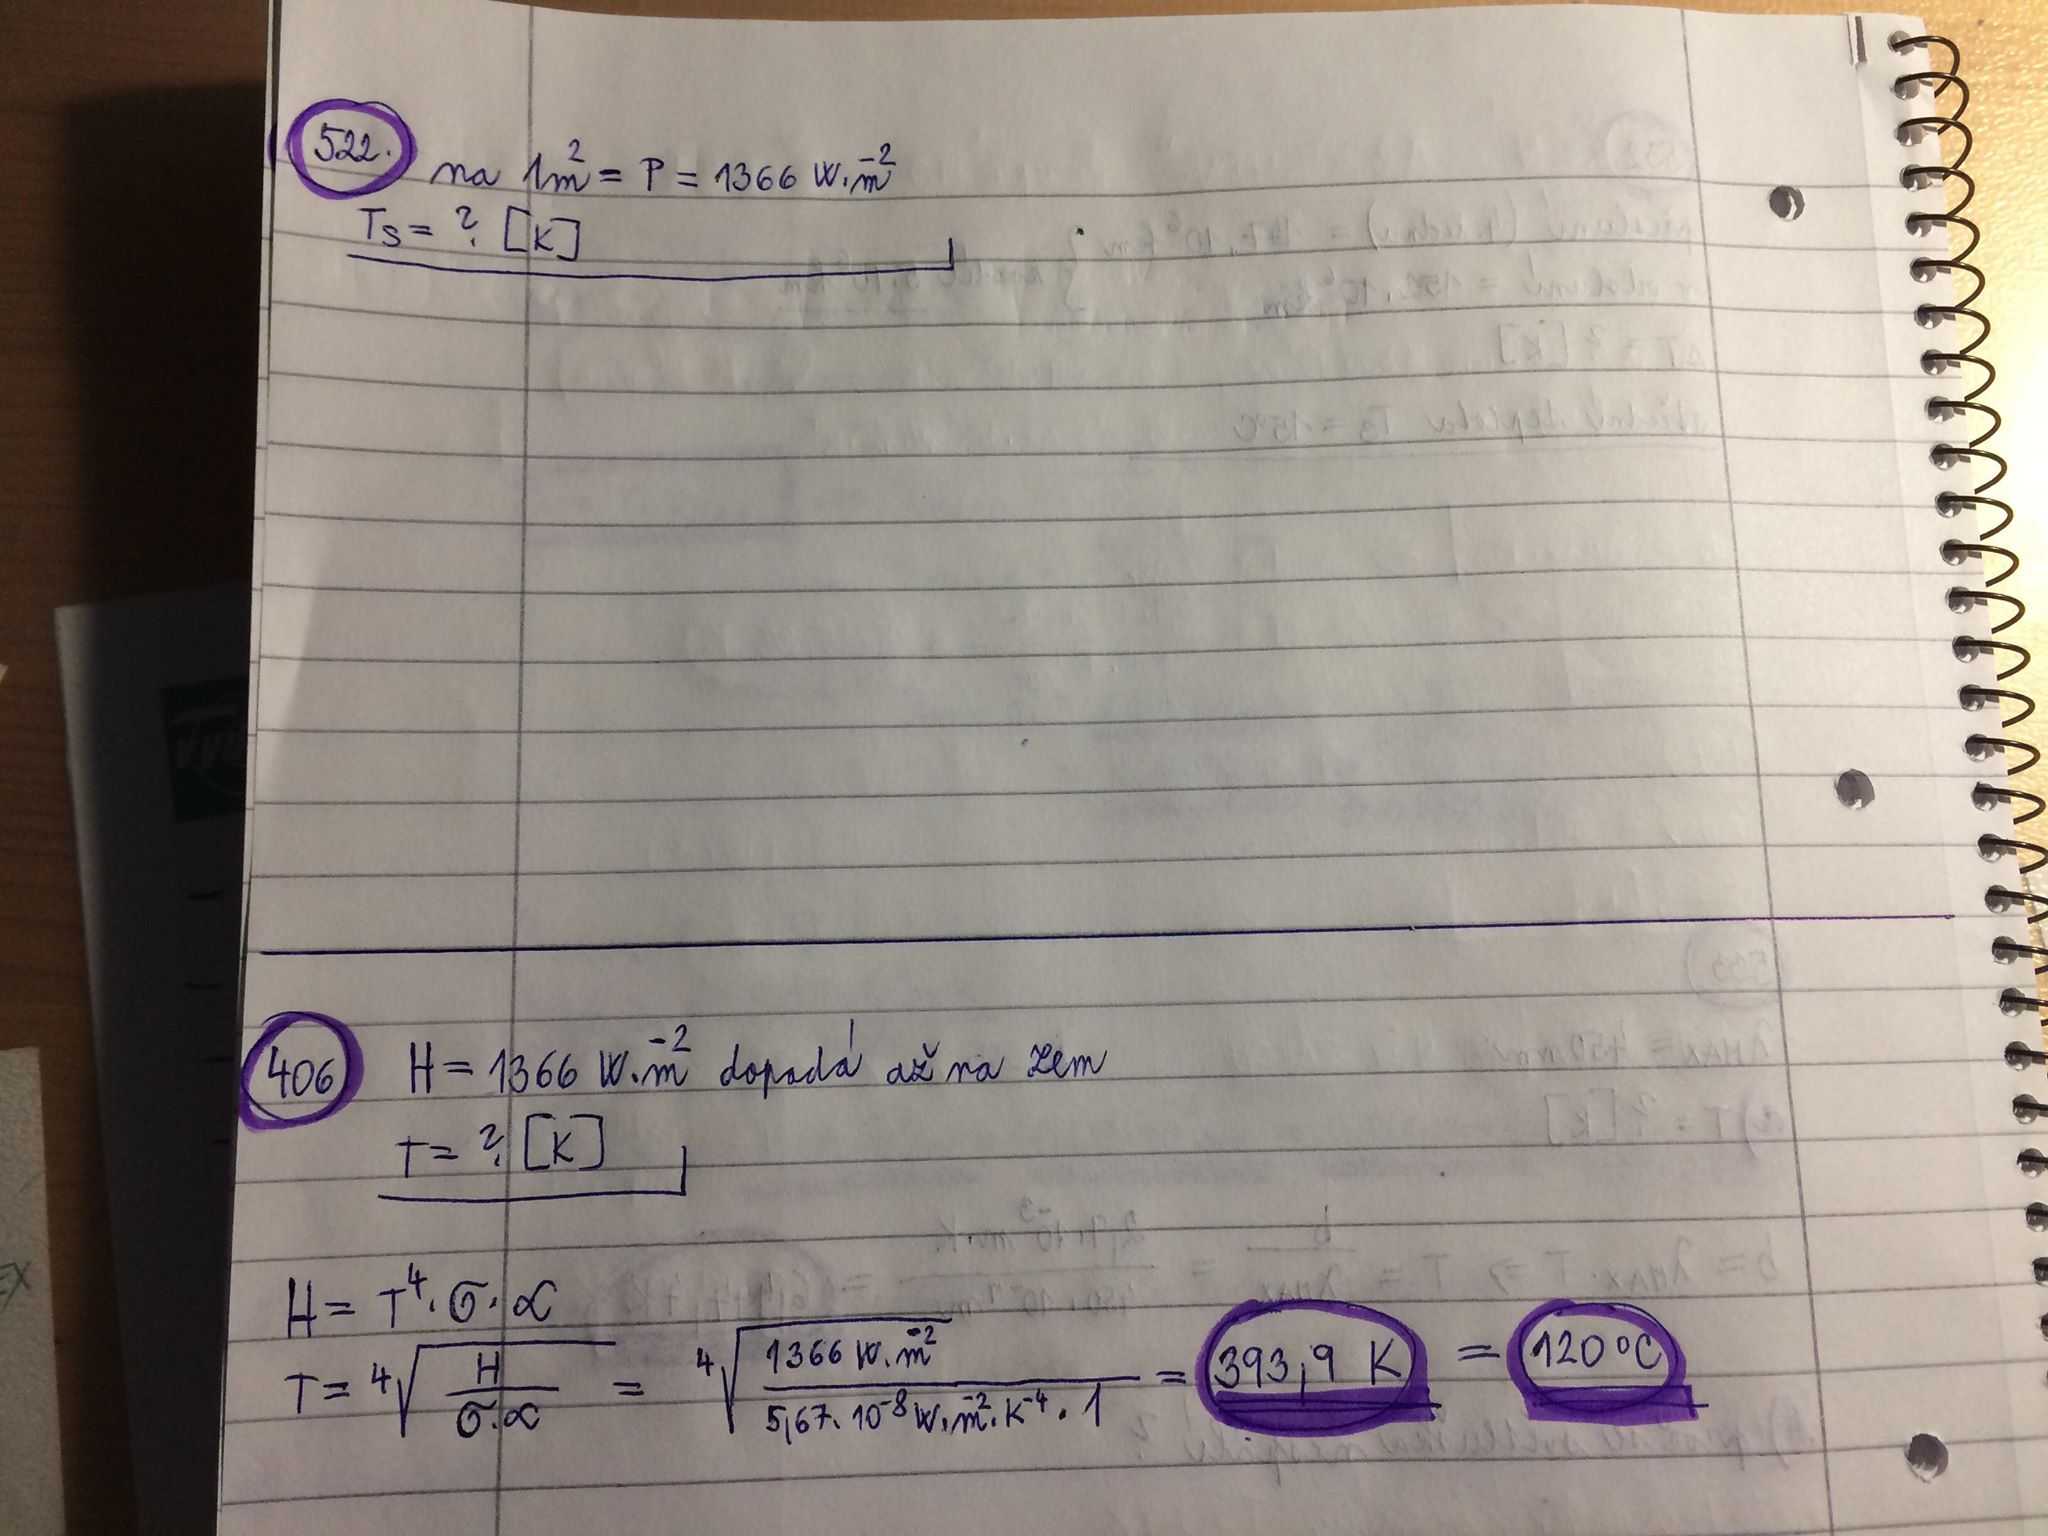 522.
na 1m² = P = 1366 W.m⁻²
Ts = ? [K]
406
H = 1366 W.m⁻² dopadá až na zem
T = ? [K]
H = T⁴ · σ · α
T = ⁴√(H / σ·α) = ⁴√(1366 W.m⁻² / 5,67 · 10⁻⁸ W.m⁻².K⁻⁴ · 1) = 393,9 K = 120°C